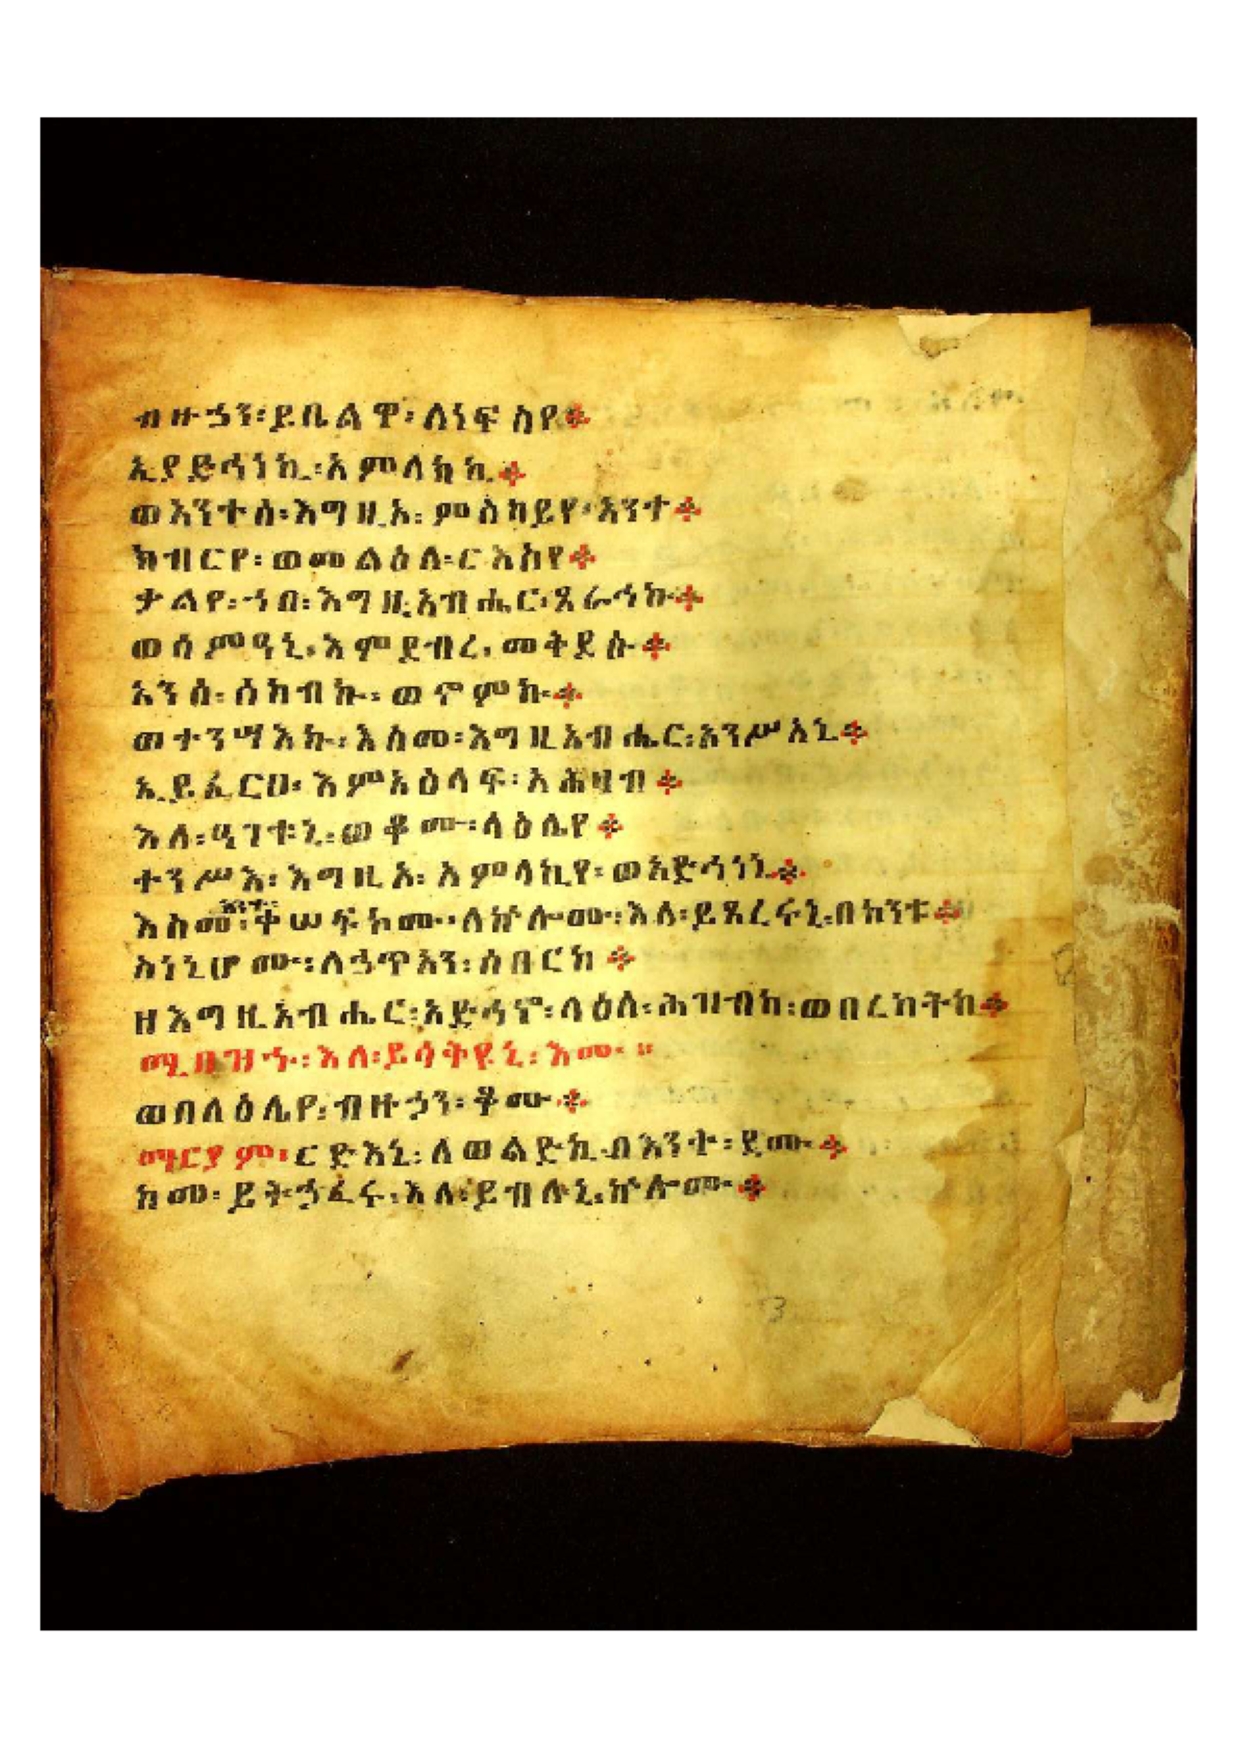 ብዙኃን፡ይቤልዋ፡ለነፍስየ።
ኢያድኅነኪ፡አምላክኪ።
ወአንተሰ፡እግዚአ፡ምስካይየ፡አንተ።
ክብርየ፡ወመልዕለ፡ርእስየ።
ቃልየ፡ኀበ፡እግዚአብሔር፡ጸራኅኩ።
ወሰምዓኒ፡እምደብረ፡መቅደሱ።
አንሰ፡ሰከብኩ፡ወኖምኩ።
ወተንሣእኩ፡እስመ፡እግዚአብሔር፡አንሥአኒ።
ኢይፈርህ፡እምአዕላፍ፡አሕዛብ።
እለ፡ዓገቱኒ፡ወቆሙ፡ላዕሌየ።
ተንሥእ፡እግዚአ፡አምላኪየ፡ወአድኅነኒ።
እስመ፡አንተ፡ቀሠፍኮሙ፡ለኵሎሙ፡እለ፡ይጸረሩኒ፡በከንቱ።
ስነኒሆሙ፡ለኃጥአን፡ሰበርከ።
ዘእግዚአብሔር፡አድኅኖ፡ላዕለ፡ሕዝብከ፡ወበረከትከ።
ሚበዝኁ፡እለ፡ይሳቅዩኒ፡እሙ።
ወበለዕሌየ፡ብዙኃን፡ቆሙ።
ማርያም፡ርድእኒ፡ለወልድኪ፡በእንተ፡ደሙ።
ከመ፡ይትኃፈሩ፡እለ፡ይብሉኒ፡ኵሎሙ።